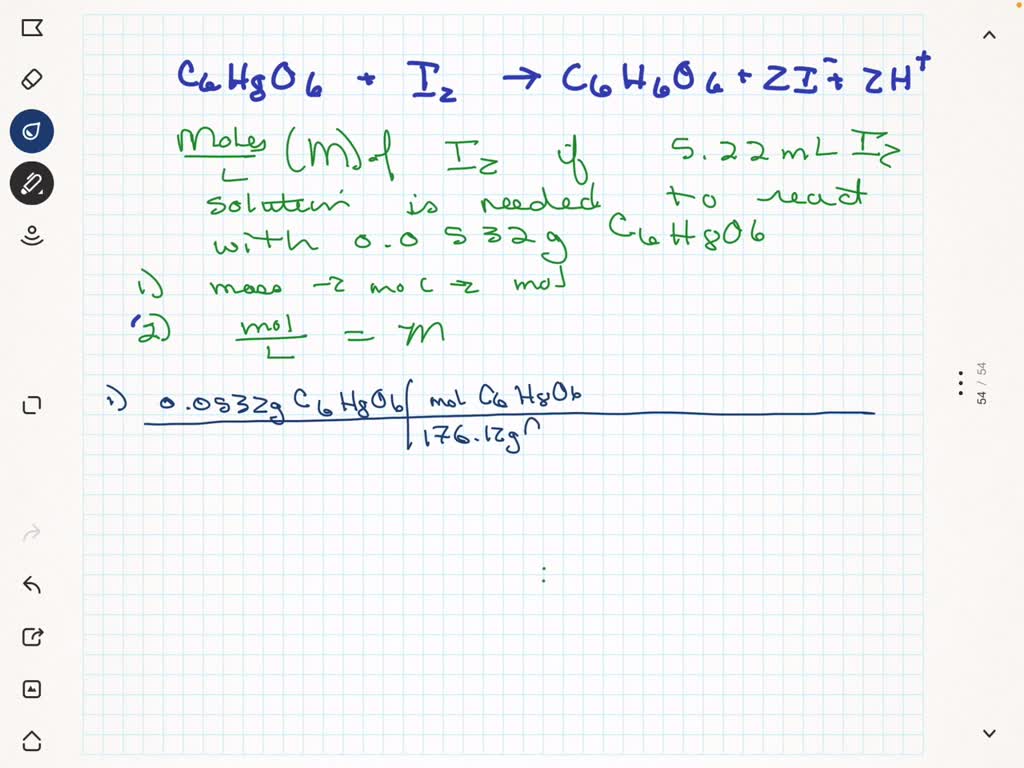 C6H8O6 + I2 → C6H6O6 + 2I⁻ + 2H⁺
Moles/L (M) of I2 if 5.22 mL I2
solution is needed to react
with 0.0532g C6H8O6
1) mass → mol → mol
2) mol/L = M
1) 0.0532g C6H8O6 | mol C6H8O6
176.12g
54 / 54